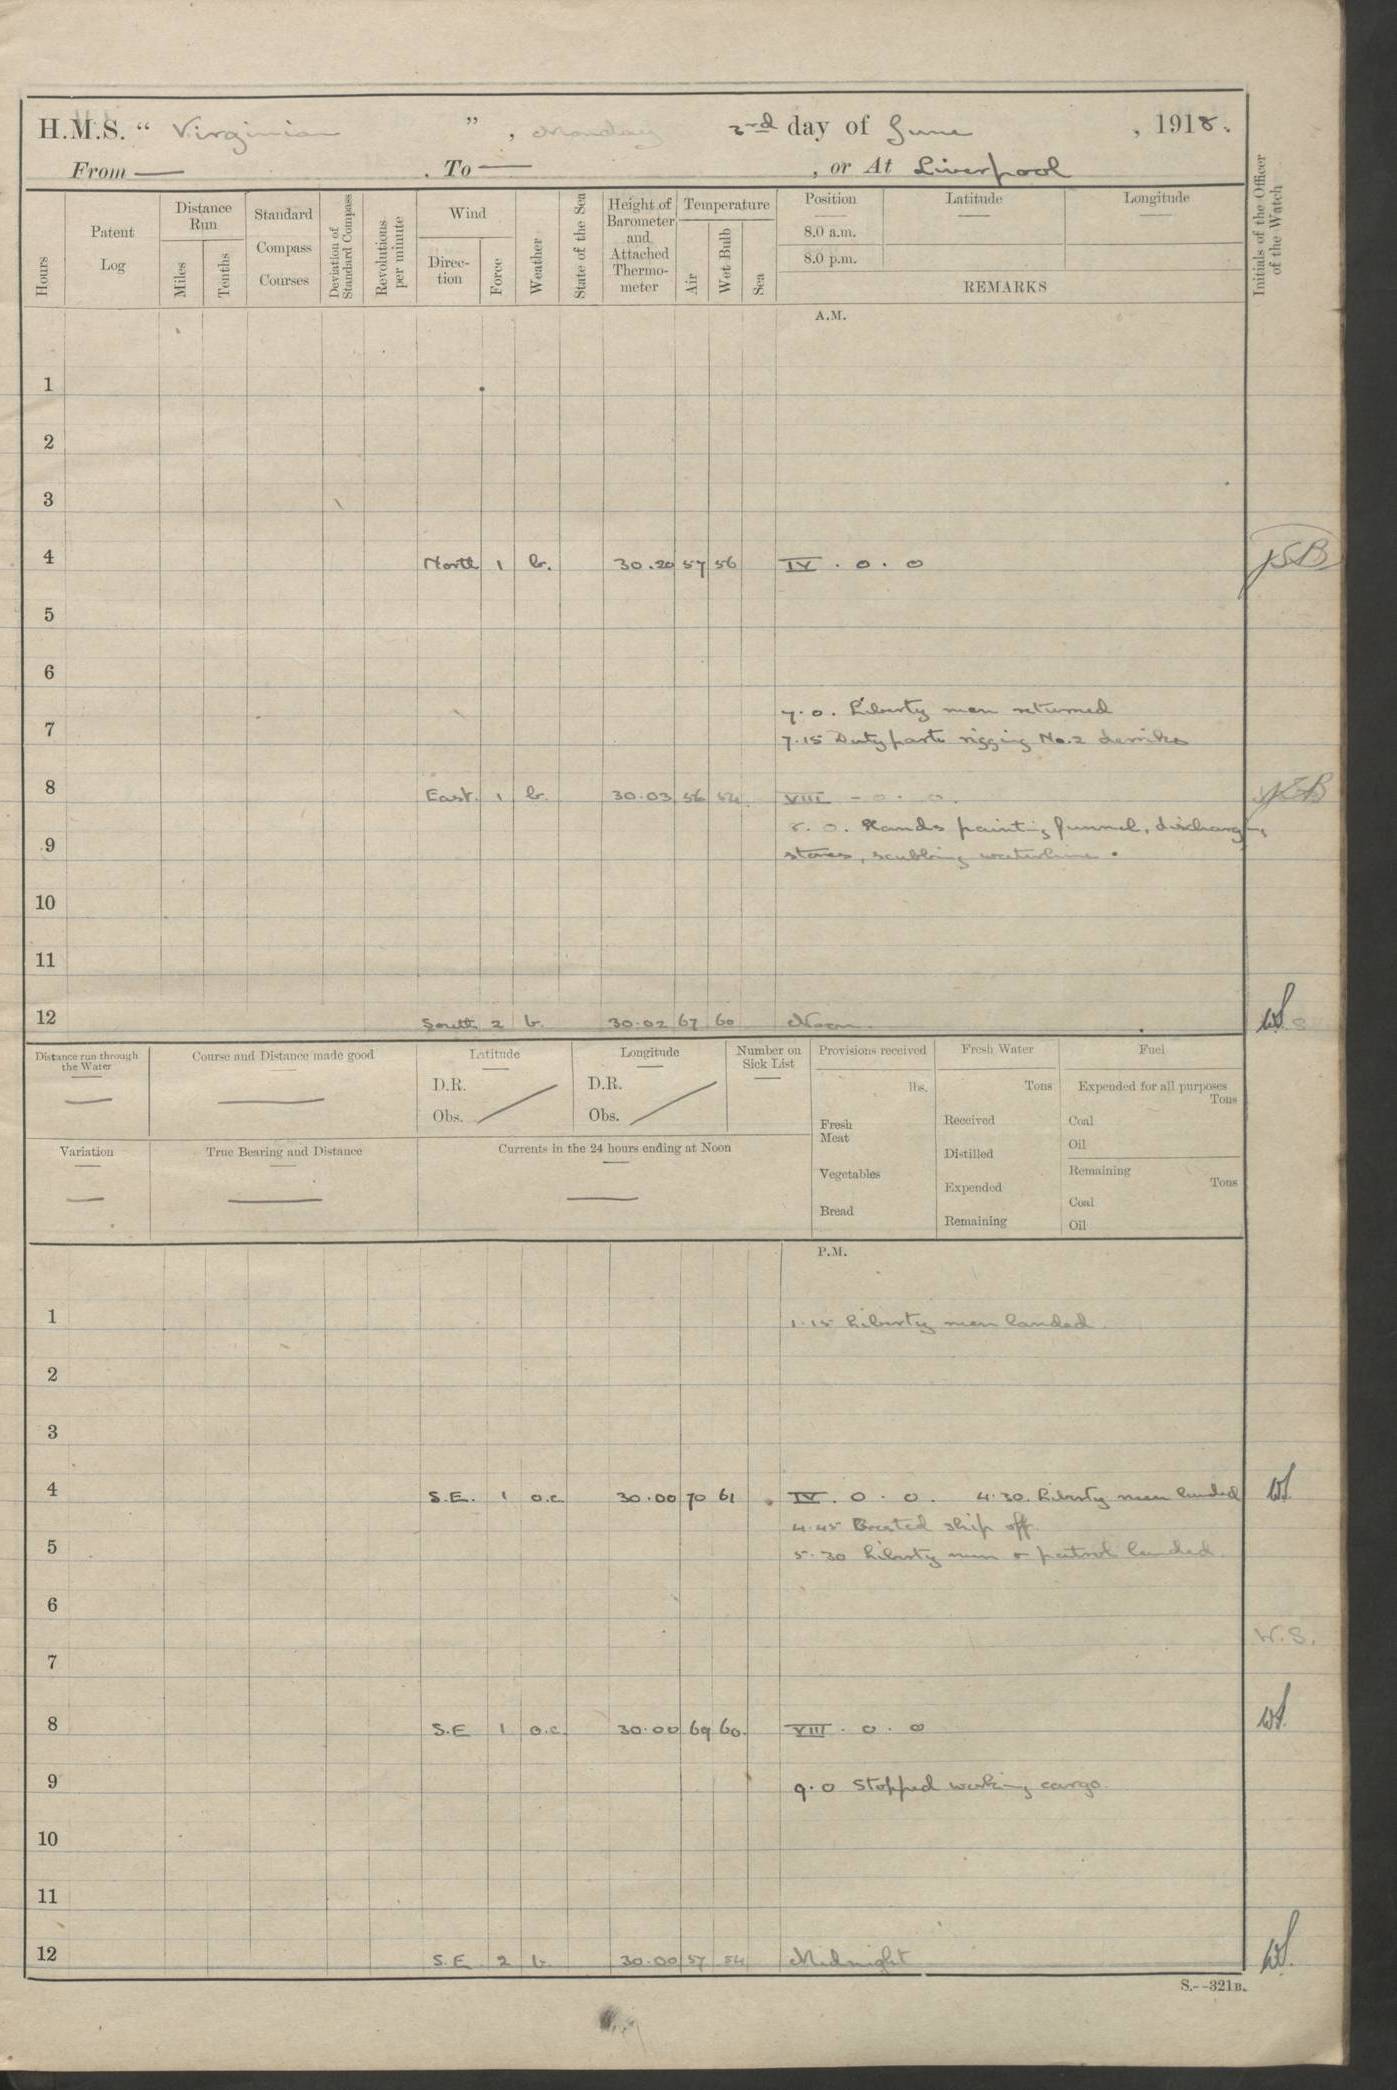 H.M.S. “ Virginian ” , Monday 3rd day of June , 1918.
From — . To — , or At Liverpool
Hours
Patent Log
Distance Run
Miles
Tenths
Standard Compass Courses
Deviation of Standard Compass
Revolutions per minute
Wind
Direction
Force
Weather
State of the Sea
Height of Barometer and Attached Thermometer
Temperature
Air
Wet Bulb
Sea
Position
8.0 a.m.
8.0 p.m.
Latitude
Longitude
REMARKS
Initials of the Officer of the Watch
A.M.
1
2
3
4 North 1 b. 30.20 57 56 IV . 0 . 0 JSB
5
6
7.0. Liberty men returned
7
7.15 Duty part rigging No.2 derriks
8 East. 1 b. 30.03 56 54 VIII - 0 . 0.
8. 0. Hands painting funnel, discharging
9
stores, scubbing waterline.
10
11
12 South 2 b. 30.02 67 60 Noon. WS
Distance run through the Water —
Course and Distance made good —
Latitude
D.R.
Obs.
Longitude
D.R.
Obs.
Number on Sick List —
Provisions received
lbs.
Fresh Meat
Vegetables
Bread
Fresh Water
Tons
Received
Distilled
Expended
Remaining
Fuel
Expended for all purposes
Tons
Coal
Oil
Remaining
Tons
Coal
Oil
Variation —
True Bearing and Distance —
Currents in the 24 hours ending at Noon —
P.M.
1 1.15 Liberty men landed.
2
3
4 S.E. 1 o.c 30.00 70 61 IV . 0 . 0. 4.30. Liberty men landed WS
4.45 Breasted ship off.
5
5.30 Liberty men & patrol landed.
6
W.S.
7
8 S.E 1 o.c. 30.00 69 60. VIII . 0 . 0 WS.
9 9.0 Stopped working cargo.
10
11
12 S.E 2 b. 30.00 57 54 Midnight WS.
S.--321B.